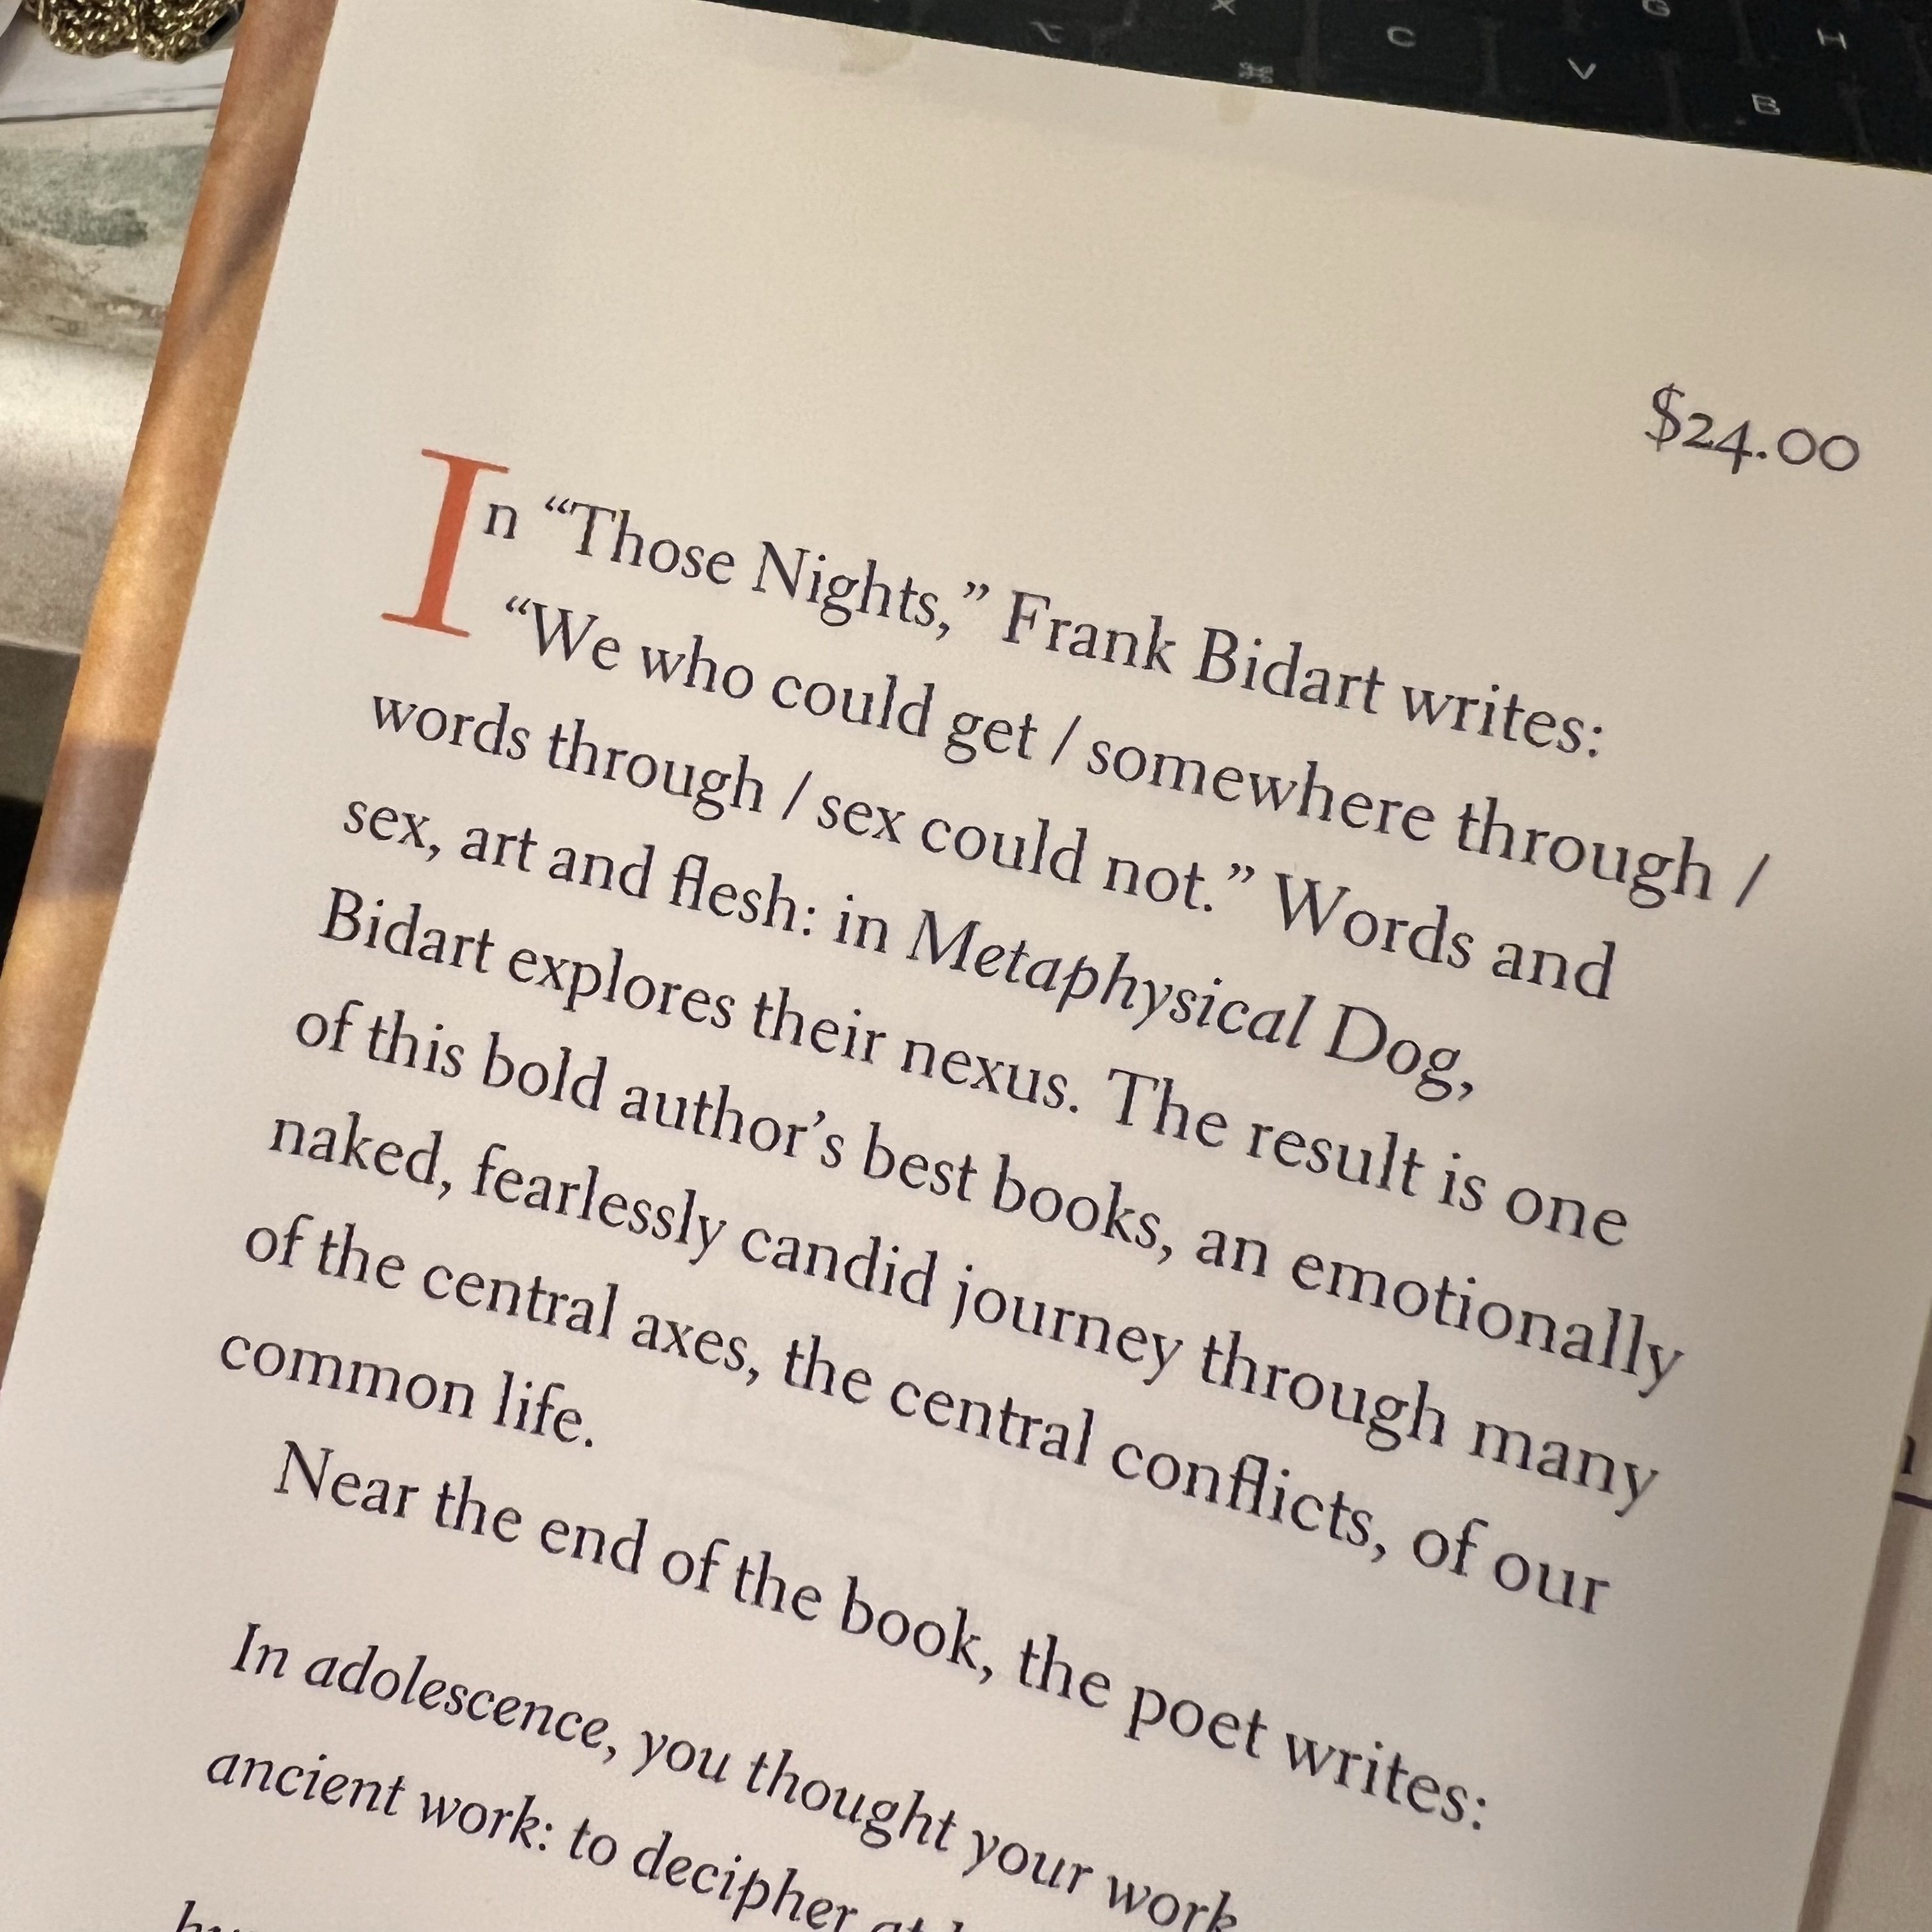 ⌥
X
⌘
C
V
G
B
H
$24.00
In “Those Nights,” Frank Bidart writes:
“We who could get / somewhere through /
words through / sex could not.” Words and
sex, art and flesh: in Metaphysical Dog,
Bidart explores their nexus. The result is one
of this bold author’s best books, an emotionally
naked, fearlessly candid journey through many
of the central axes, the central conflicts, of our
common life.
Near the end of the book, the poet writes:
In adolescence, you thought your work
ancient work: to decipher at